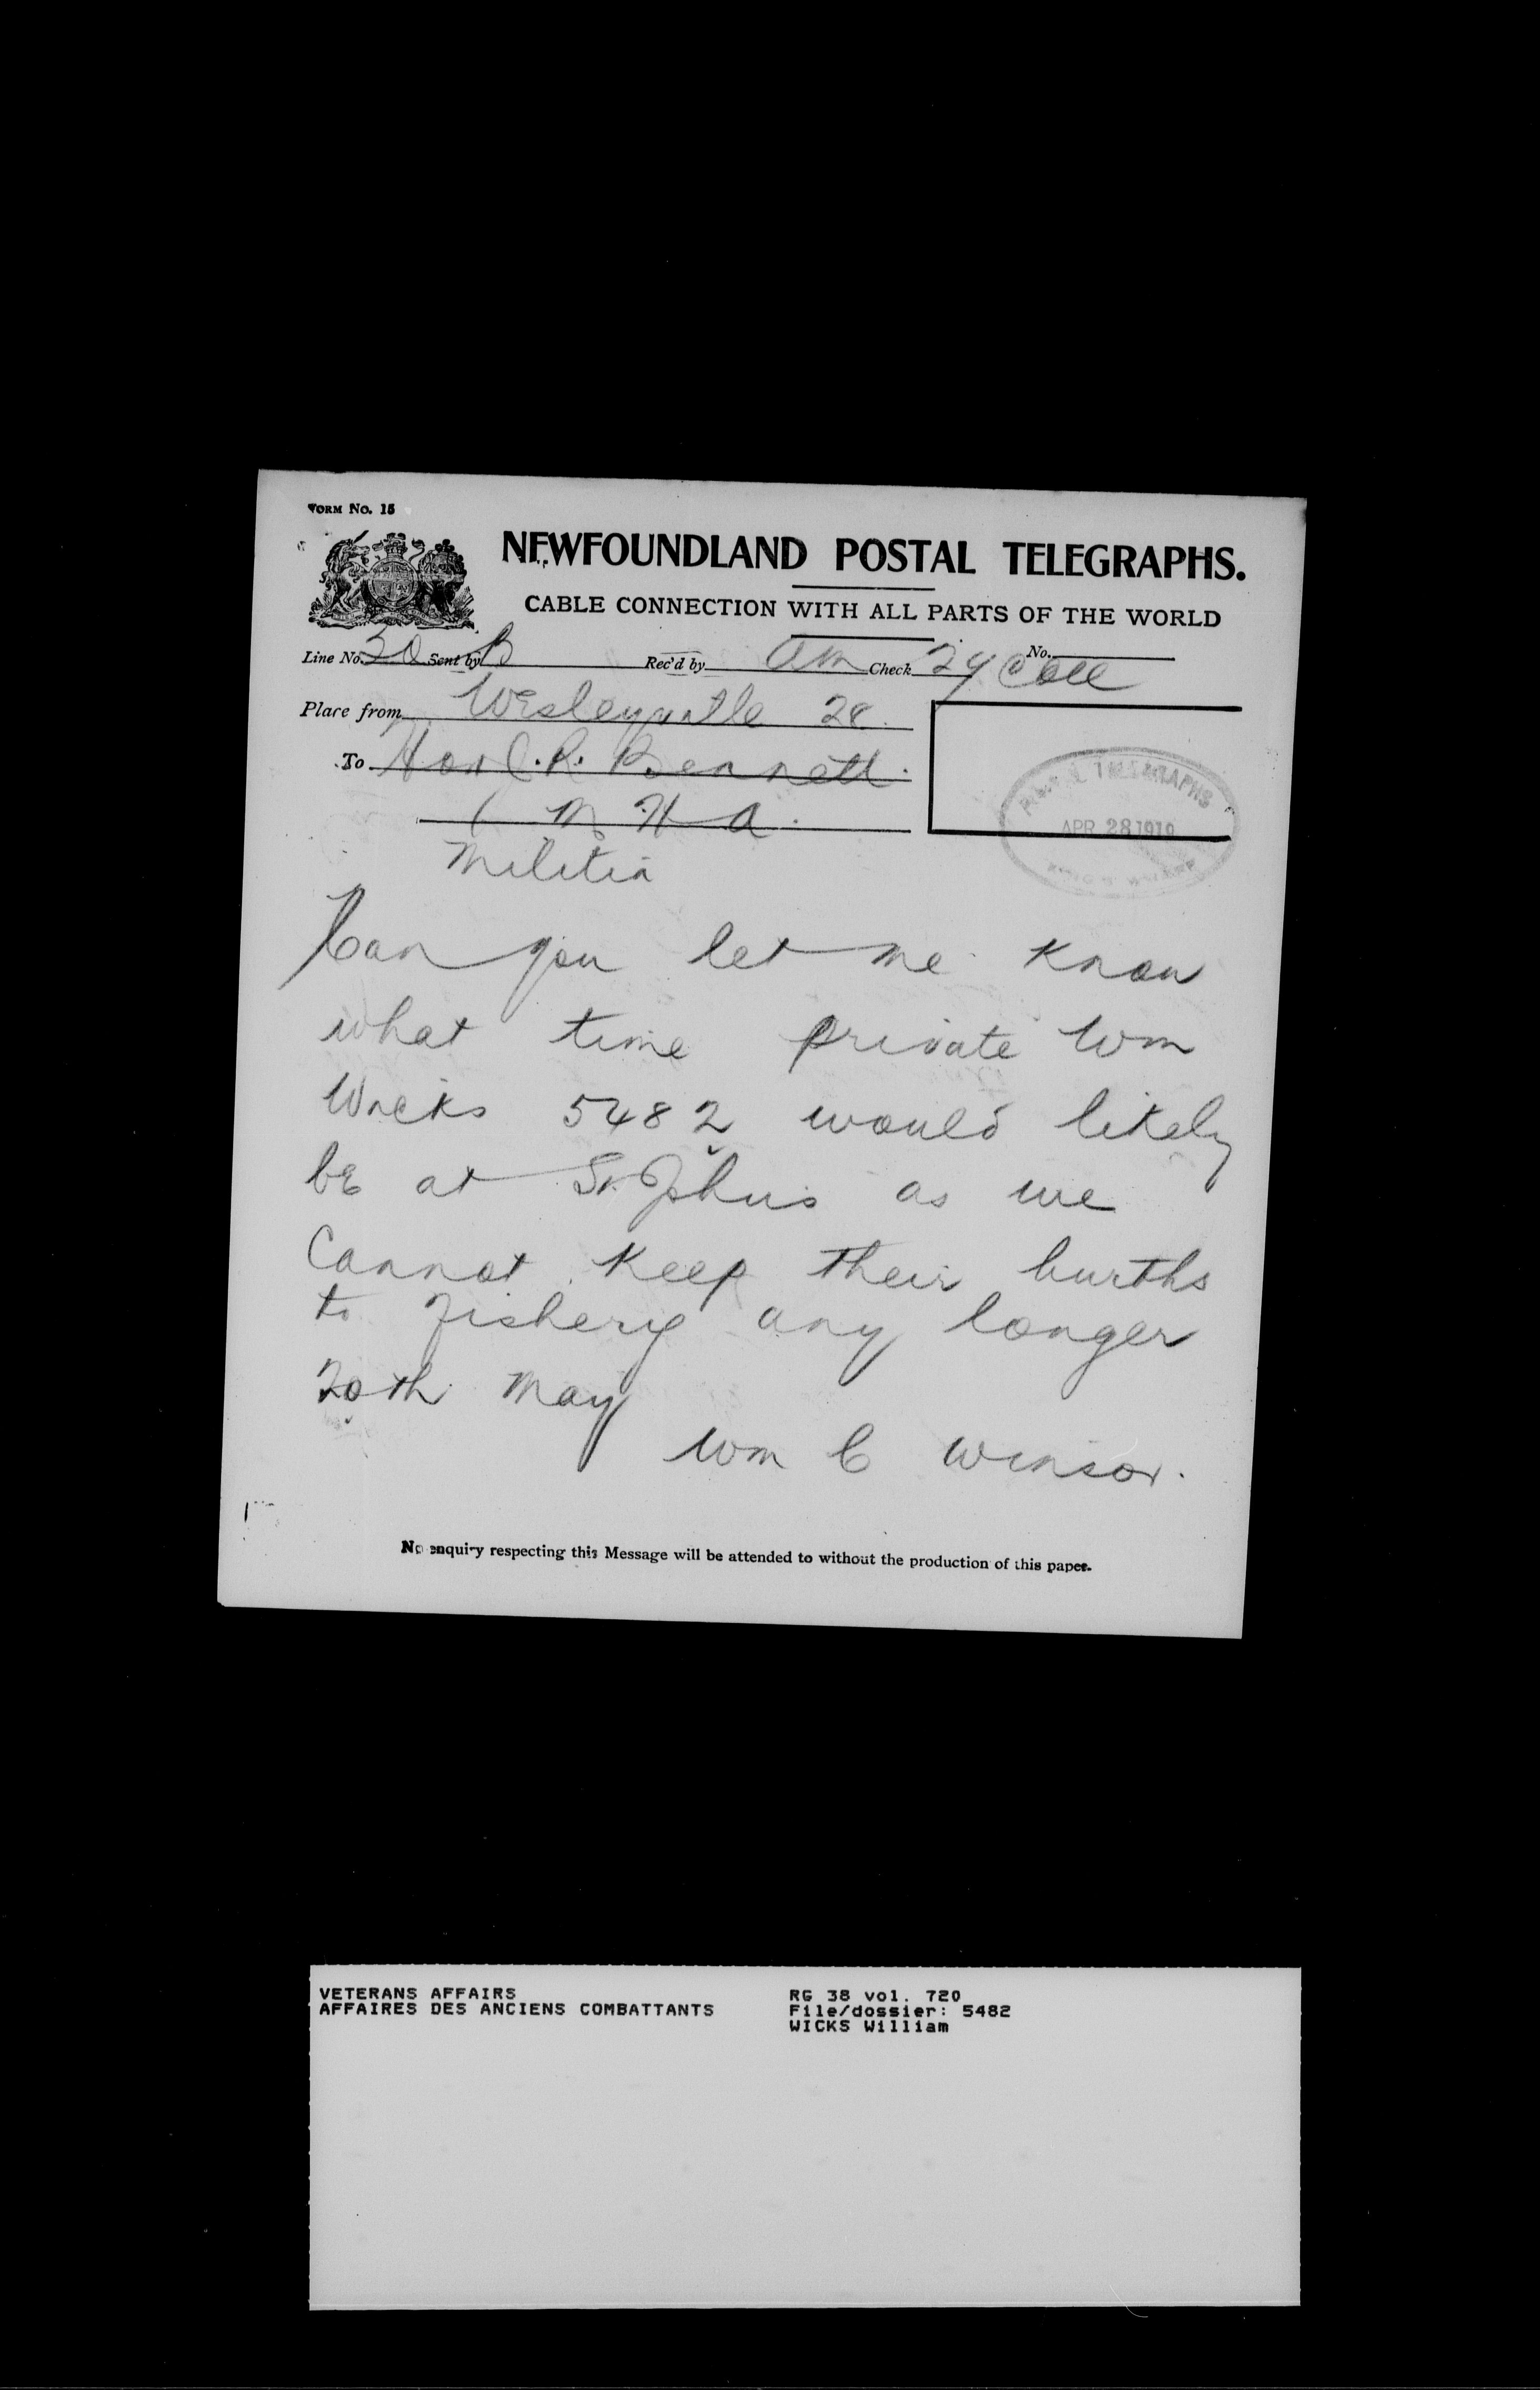 FORM No. 15
NEWFOUNDLAND POSTAL TELEGRAPHS.
CABLE CONNECTION WITH ALL PARTS OF THE WORLD
Line No. 30 Sent by B Rec'd by am Check 29 Coll No.
Place from Wesleyville 28.
To Hon C.R. Bennett.
M H A.
Militia
POSTAL TELEGRAPHS
APR 28 1919
Can you let me know
what time private Wm
Wicks 5482 would likely
be at St Johns as we
Cannot keep their burths
to fishery any longer
20th May
Wm C Winsor.
No enquiry respecting this Message will be attended to without the production of this paper.
VETERANS AFFAIRS RG 38 vol. 720
AFFAIRES DES ANCIENS COMBATTANTS File/dossier: 5482
WICKS William